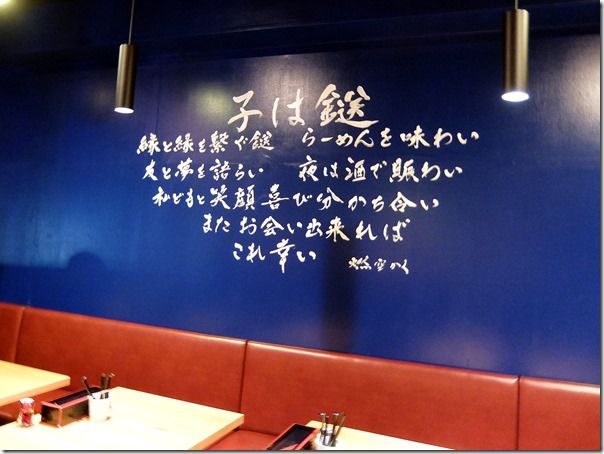 子は鎹
縁と縁を繋ぐ鎹　らーめんを味わい
友と夢を語らい　夜は酒で賑わい
私どもと笑顔喜び分かち合い
またお会い出来れば
これ幸い
かく